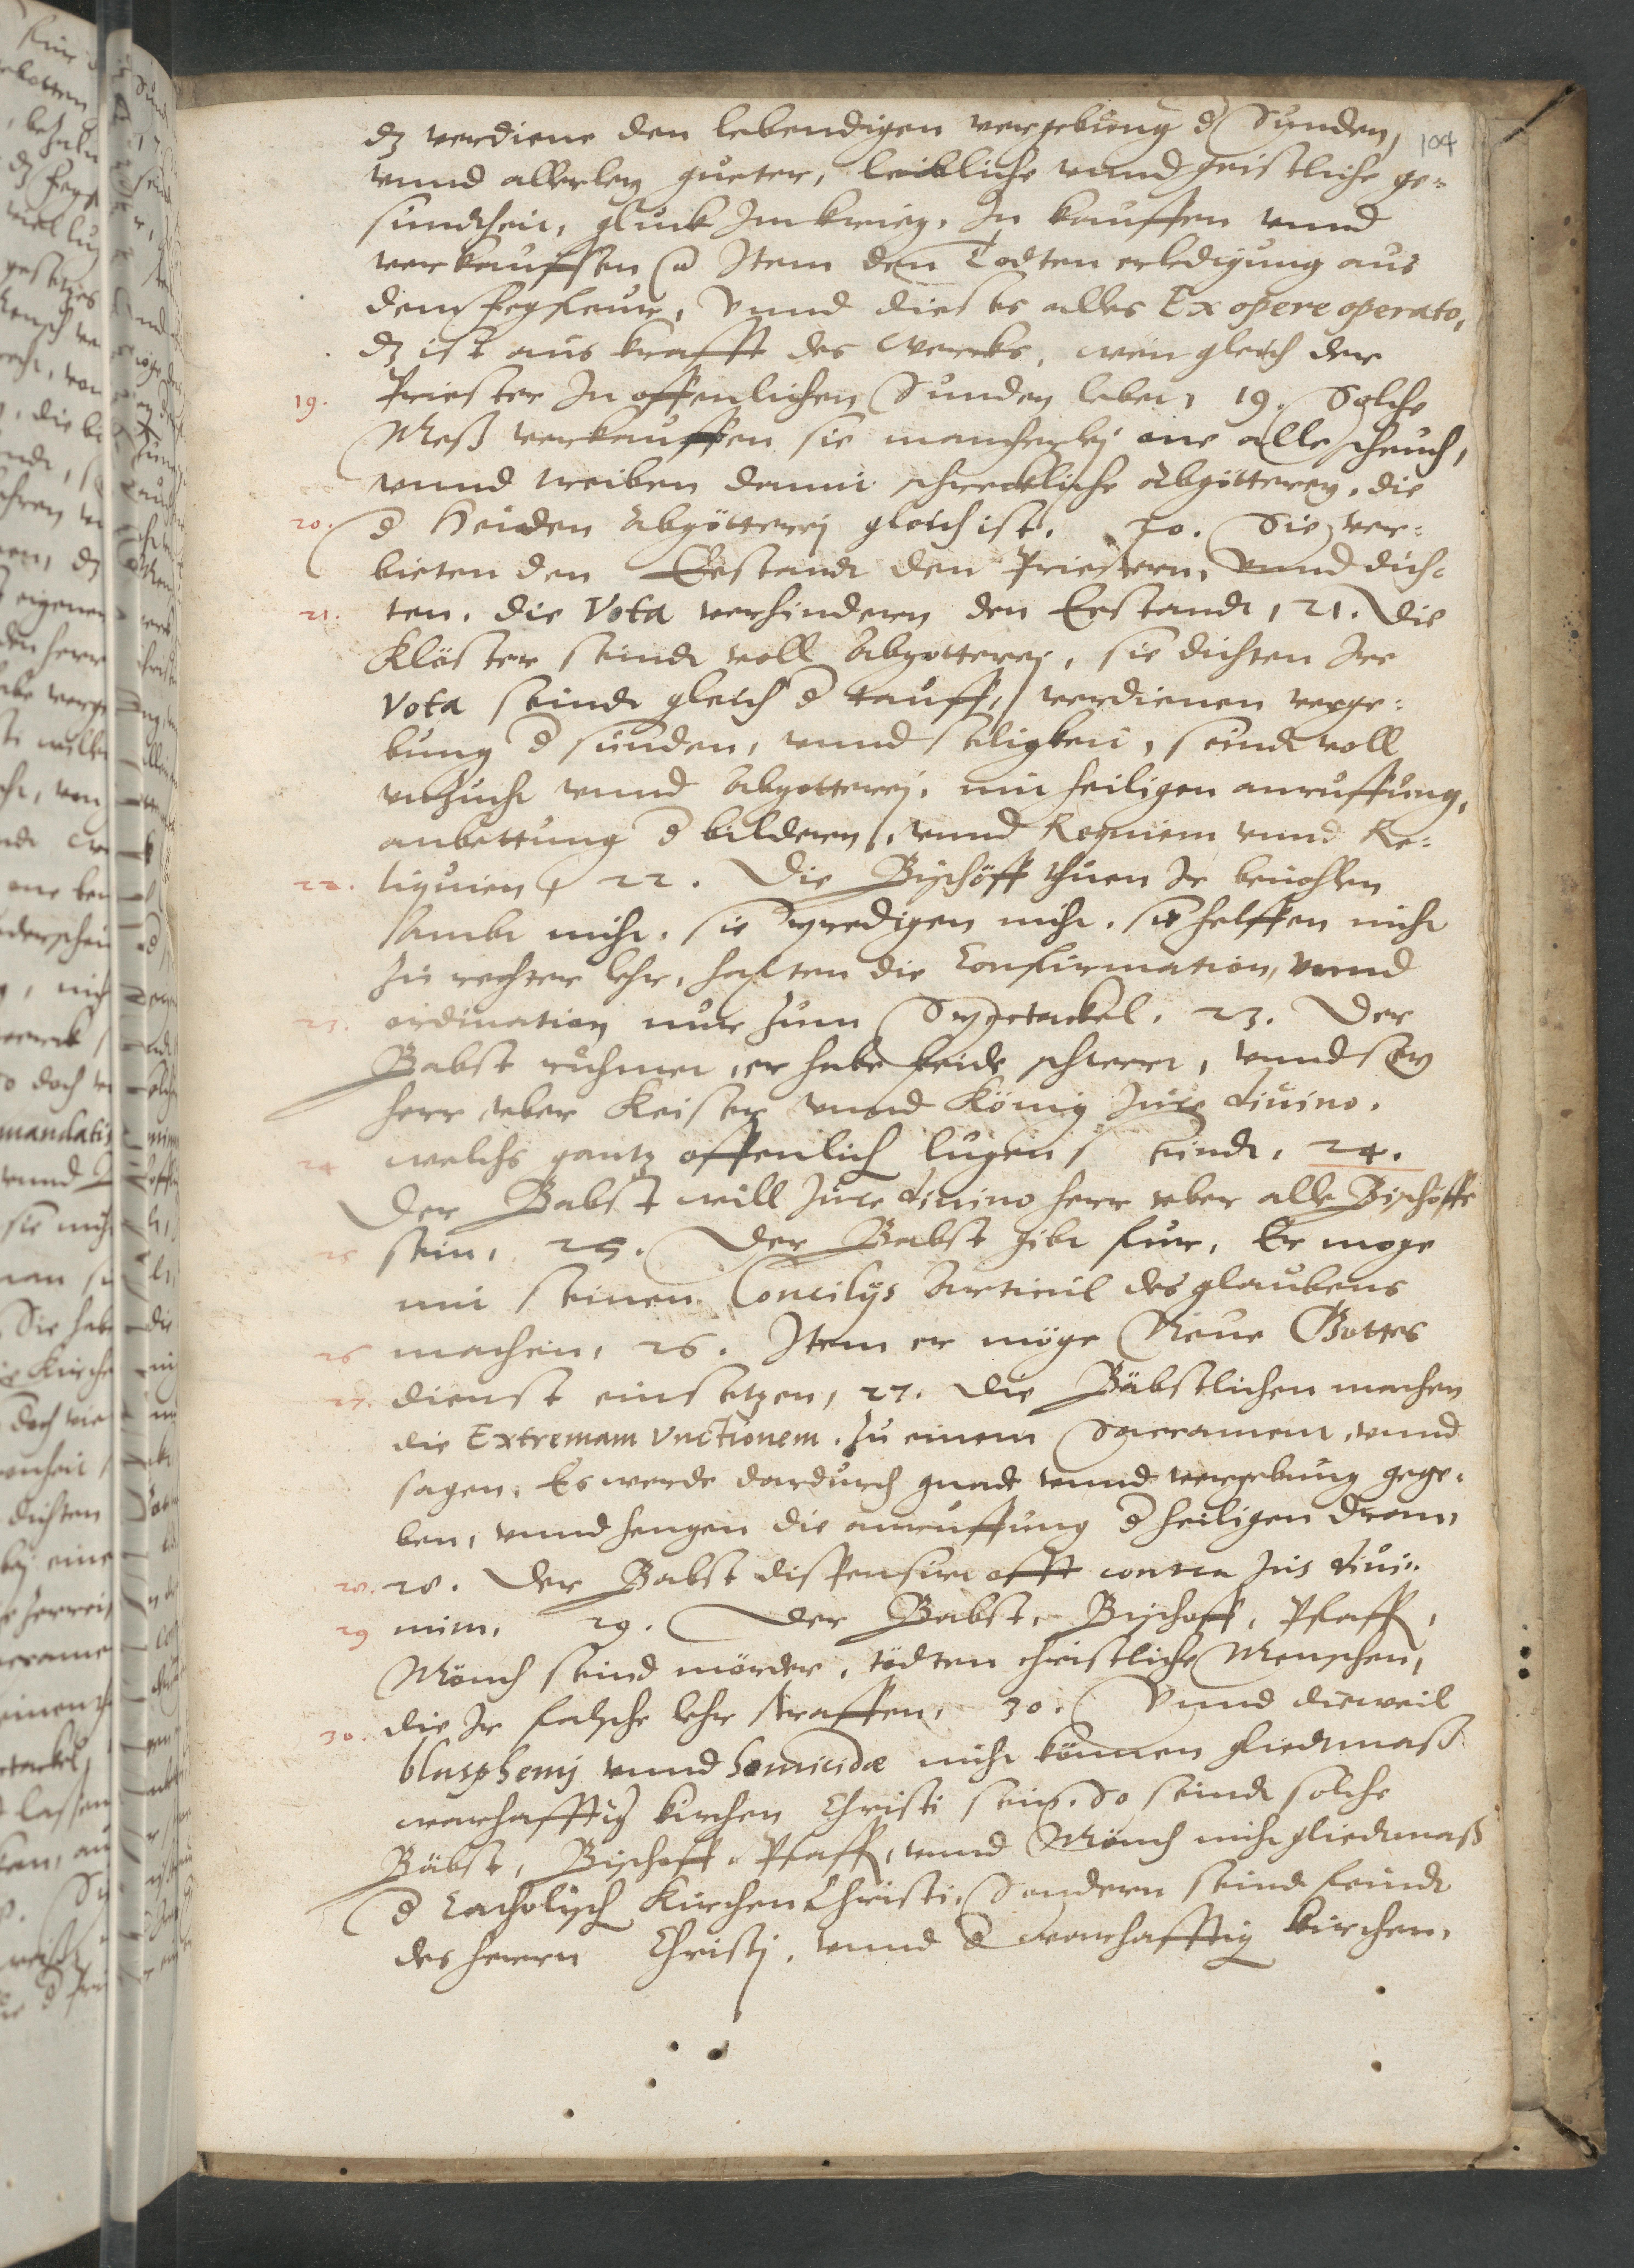 104
dz verdiene den lebendigen vergebung d Synden,
vnnd allerley gueter, leibliche vnnd geistliche ge=
sundtheit, gluck Im krieg, In kauffen vnnd
verkauffen Item den Todten erledigung aus
dem fegfeur, Vnnd dieses alles Ex opere operato,
dz ist aus krafft des Wercks, wen gleich der
19. Priester In offenlichen Sunden lebet, 19. Solche
Meß verkauffen sie mancherlej one alle scheuch,
vnnd treiben damit schreckliche Abgötterey, die
20. d Heiden Abgötterej gleich ist. 20. Sie ver=
bieten den Eestandt den Priestern, Vnnd dich=
21. ten, die Vota verhinderen den Eestandt, 21. Die
Klöster seindt voll Abgotterej, sie dichten Ire
Vota seindt gleich d tauff, verdienen verge=
bung d sünden, vnnd seligkeit, seindt voll
vnzucht vnnd Abgotterej, mit heiligen anruffung,
anbettung d bilderen, vnnd Requiem vnnd Re=
22. liquien, 22. Die Bischöff thuen Ir beuohlen
Ambt nicht, sie predigen nicht, sie helffen nicht
zu rechter lehr, halten die Confirmation, vnnd
23. ordination nur zum Spectackel. 23. Der
Babst rühmet, er habe beide schwert, vnnd sey
herr vber Keiser vnnd König Jure diuino.
24 welchs gantz offenlich lugen seindt, 24.
Der Babst will Jure diuino herr vber alle Bischoffe
25 sein, 25. Der Babst gibt fur, Er moge
mit seinen Concilijs Articul des glaubens
26 machen, 26. Item er möge Neue Gottes
27. dienst einsetzen, 27. die Bäbstlichen machen
die Extremam Vnctionem. zu einem Sacrament, vnnd
sagen, Es werde dardurch gnade vnnd vergebung gege=
ben, vnnd hengen die anruffung d heiligen dran,
28. 28. Der Babst dispensirt offt contra Jus diui=
29 num. 29. Der Babst, Bischoff, Pfaff,
Mönch seind mörder, tödten christliche Menschen,
30. die Ir falsche lehr straffen, 30. Vnnd dieweil
blasphemj vnnd homicidæ nicht können gliedtmaß
warhafftig kirchen Christi sein. So seindt solche
Bäbst, Bischoff, Pfaff, vnnd Mönch nicht gliedtmaß
d Catholisch Kirchen Christi. Sondern seind feindt
des herrn Christj, vnnd d warhafftig kirchen.